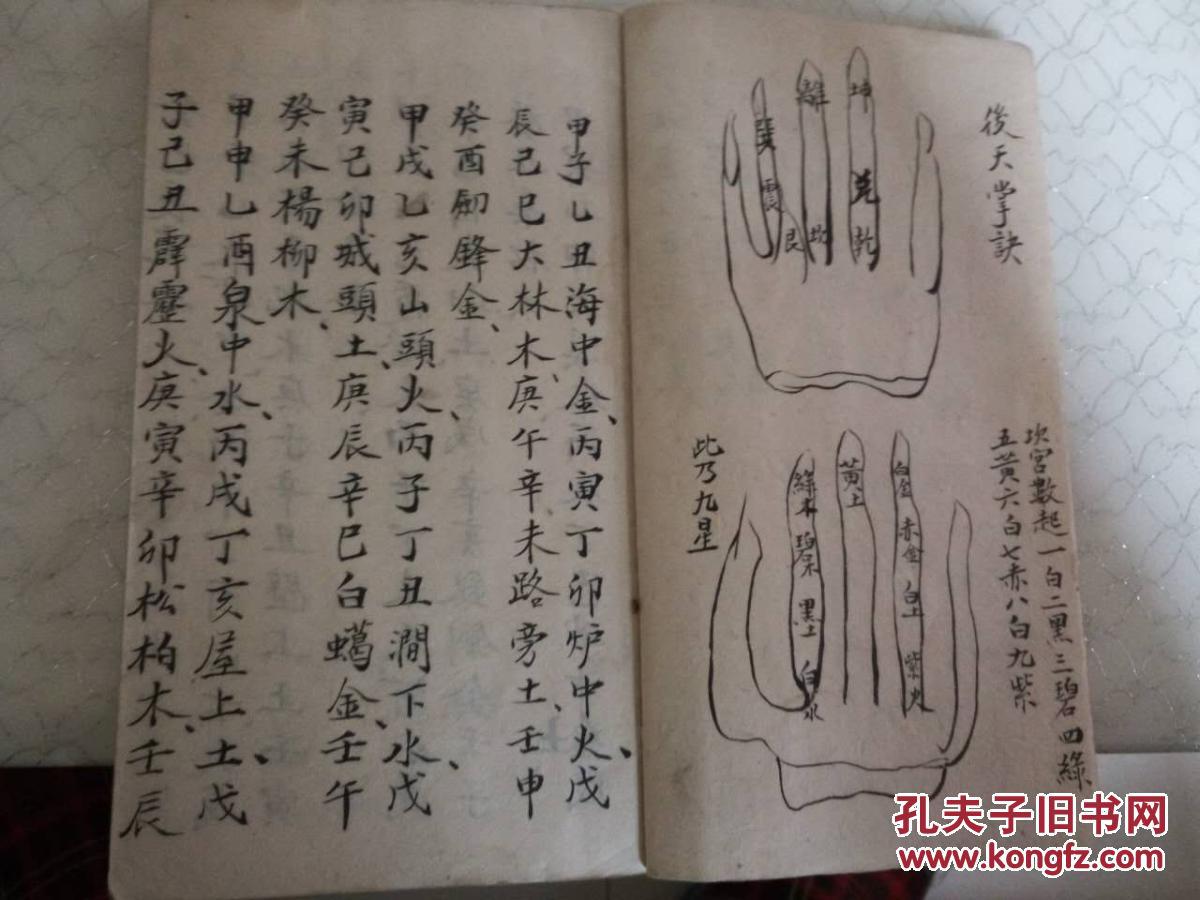 後天掌訣
坤
兌
乾
離
坎
巽
震
艮
坎宮數起一白二黑三碧四綠
五黃六白七赤八白九紫
白金
赤金
白土
紫火
黃土
綠木
碧木
黑土
白水
此乃九星
甲子乙丑海中金、丙寅丁卯炉中火、戊
辰己巳大林木、庚午辛未路旁土、壬申
癸酉劒鋒金、
甲戌乙亥山頭火、丙子丁丑澗下水、戊
寅己卯城頭土、庚辰辛巳白蠟金、壬午
癸未楊柳木、
甲申乙酉泉中水、丙戌丁亥屋上土、戊
子己丑霹靂火、庚寅辛卯松柏木、壬辰
孔夫子旧书网
www.kongfz.com